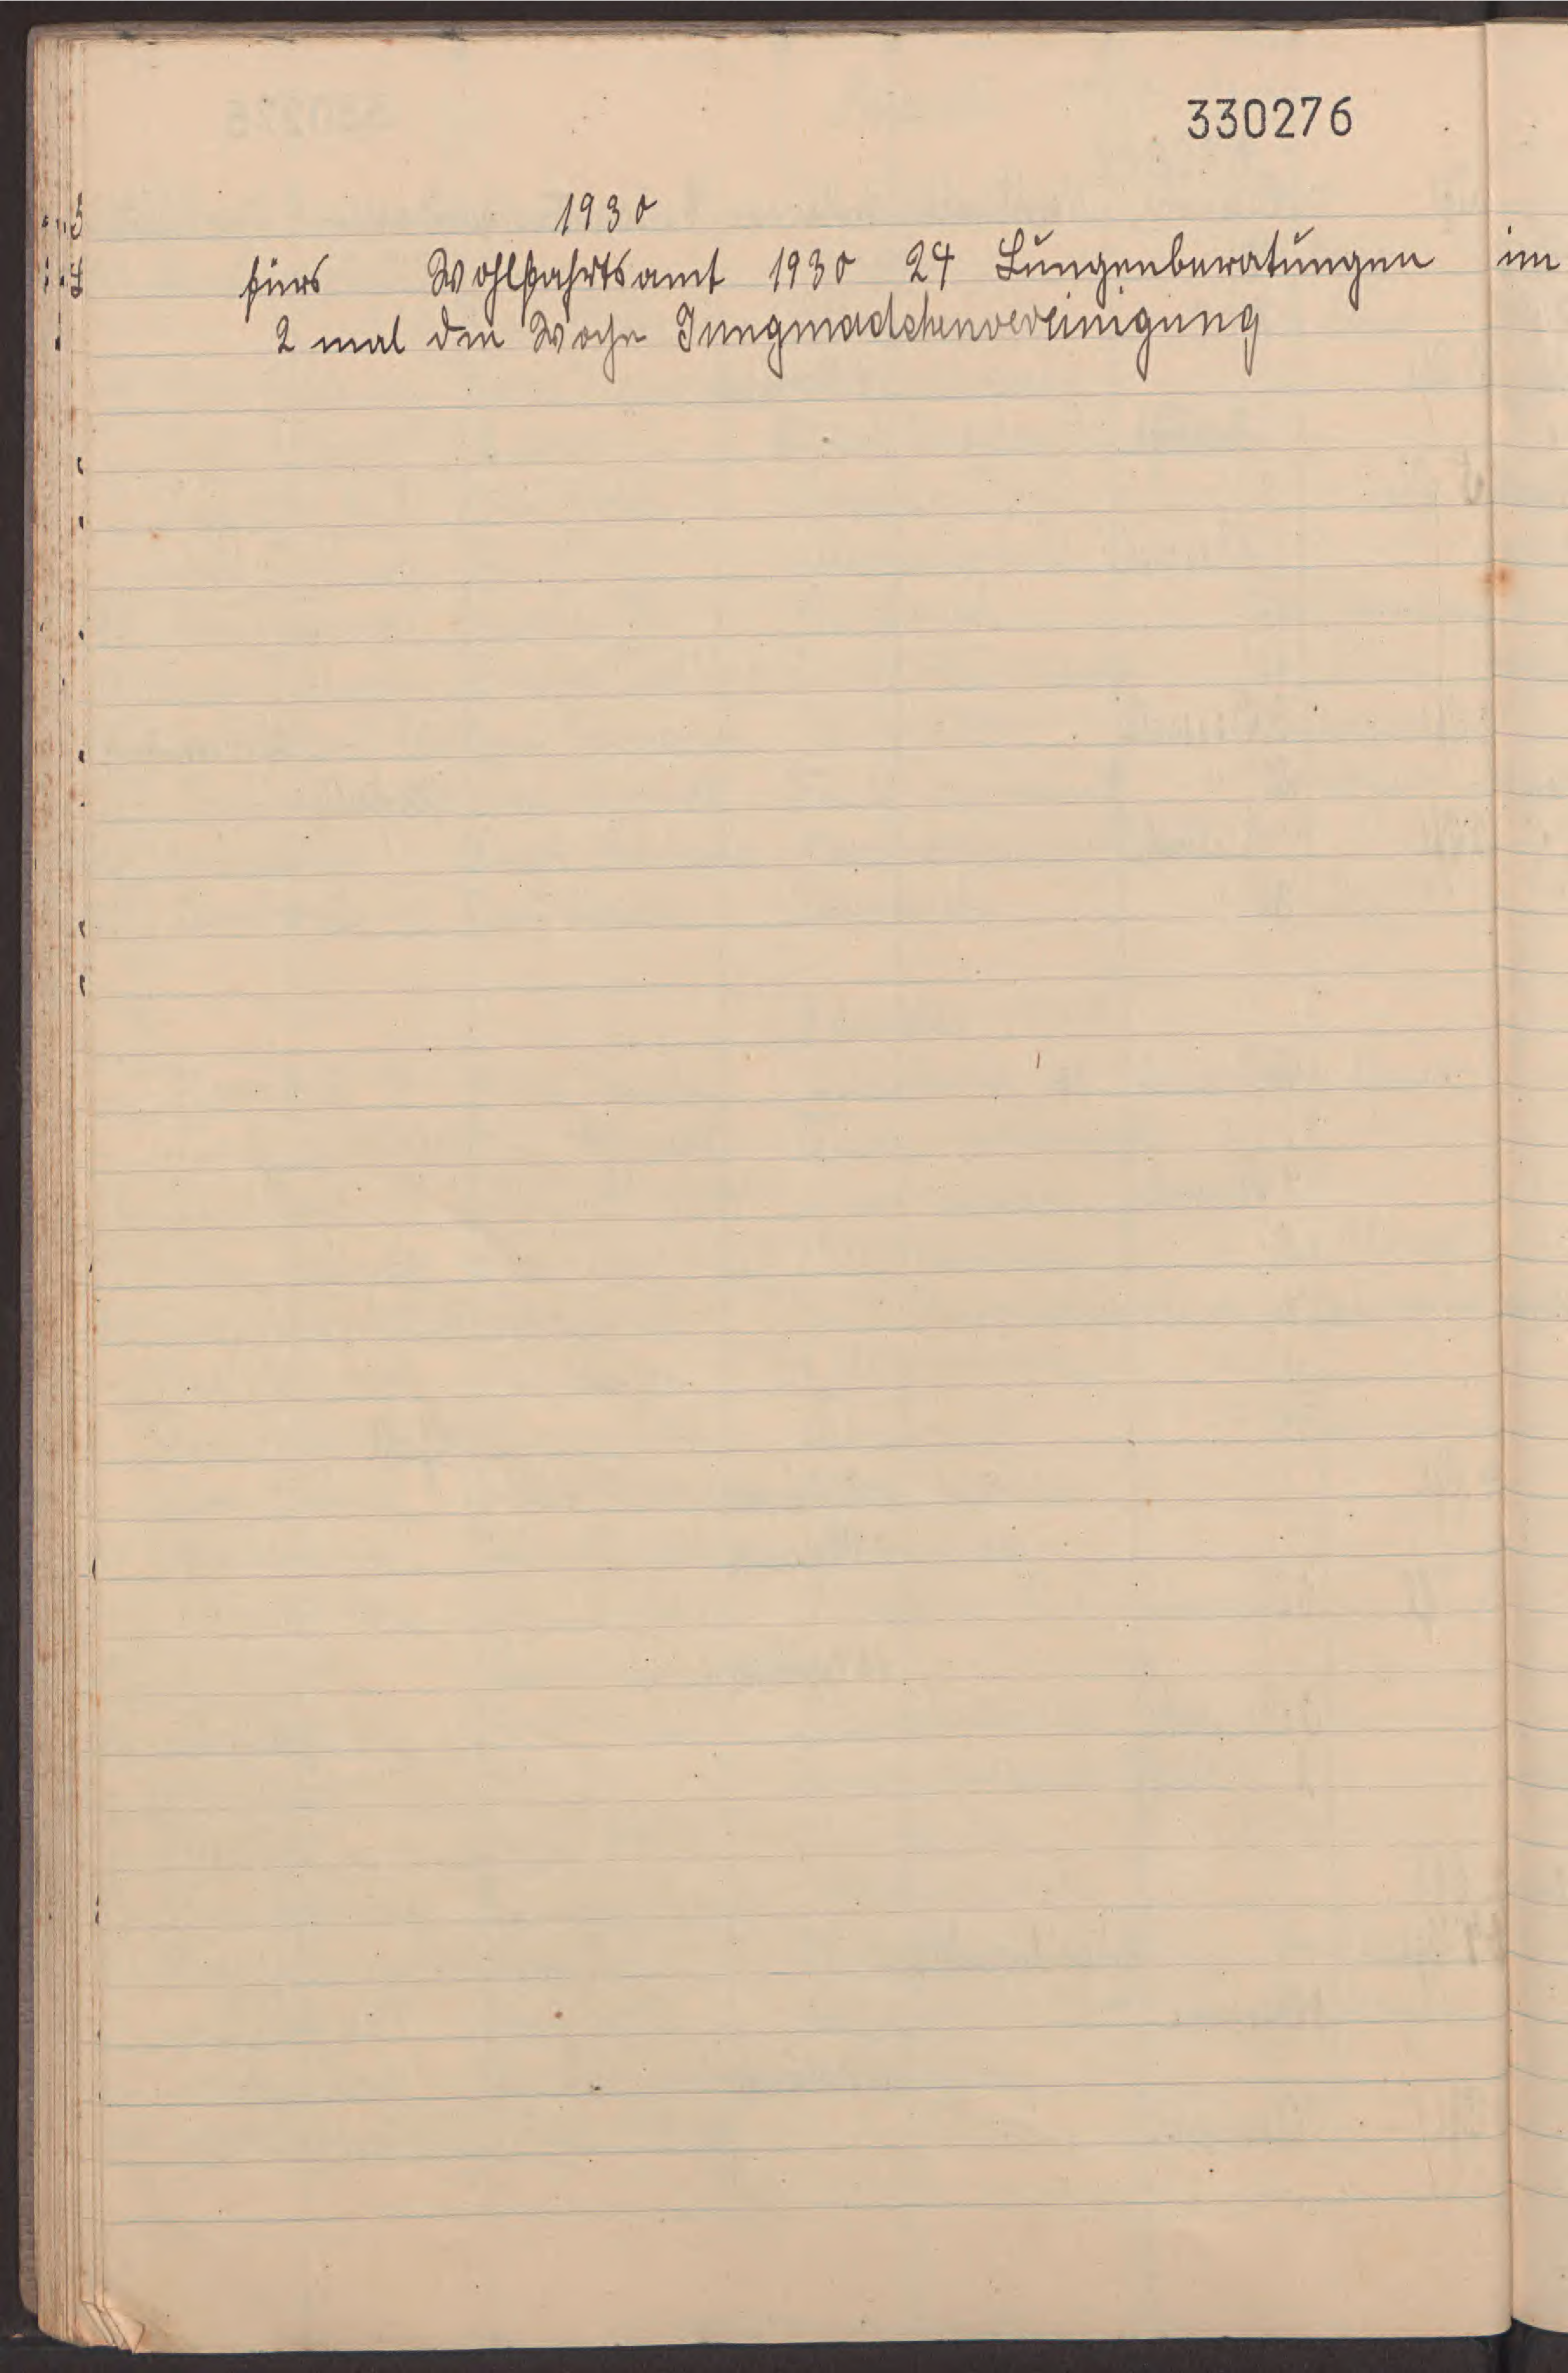 330276
1930
fürs Wohlfahrtsamt 1930 24 Lungenberatungen im
2 mal den Woche Jungmadchenvereinigung